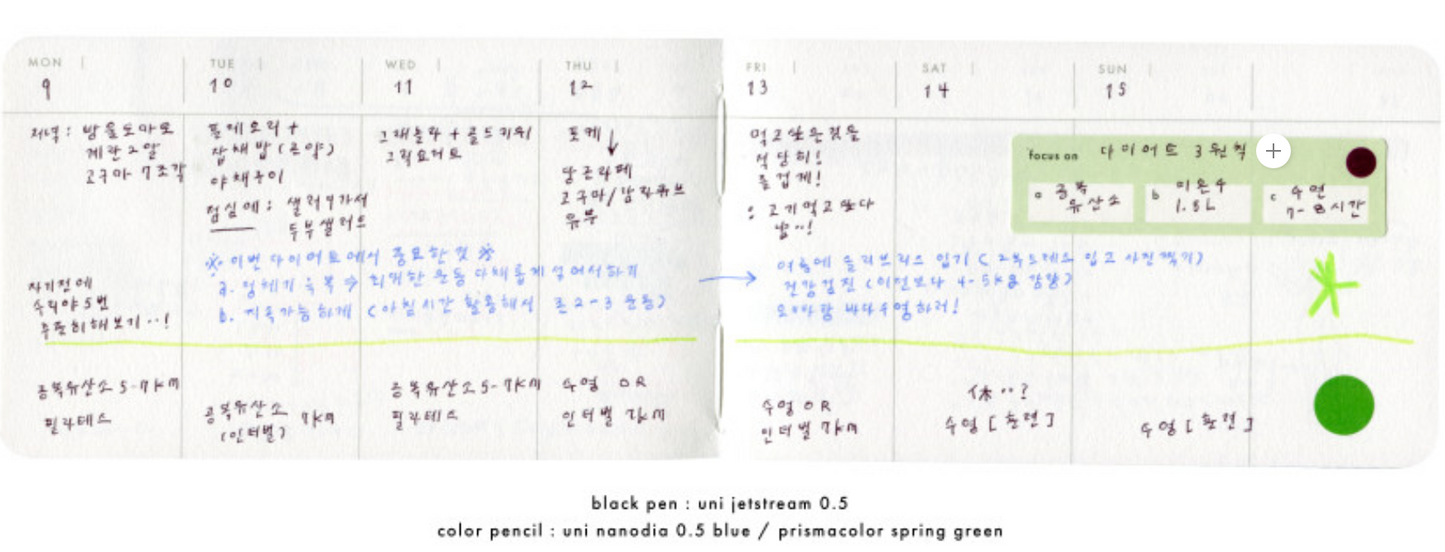 MON
9
TUE
10
WED
11
THU
12
FRI
13
SAT
14
SUN
15
저녁: 방울토마토
계란 2알
고구마 7조각
훈제오리 +
잡채밥(곤약)
야채구이
점심에: 샐러드가서
두부샐러드
그래놀라 + 골드키위
그릭요거트
포케 ↓
당근라페
고구마/감자큐브
유부
먹고싶은것은
적당히!
즐겁게!
: 고기먹고싶다
focus on 다이어트 3원칙
a 공복
유산소
b 미온수
1.5L
c 수면
7-8시간
자기전에
5번
해보기..!
※ 이번 다이어트에서 중요한것 ※
a. 정체기 극복 ⇒ 최대한 운동 다채롭게 섞어서하기
b. 지속가능하게 (아침시간 활용해서 존2-3 운동)
→ 여름에 슬리브리스 입기 ( 입고 사진찍기)
건강검진 (이전보다 4-5kg 감량)
바다수영하러!
공복유산소 5-7km
필라테스
공복유산소 7km
(인터벌)
공복유산소 5-7km
필라테스
수영 OR
인터벌 7km
수영 OR
인터벌 7km
休..?
수영 [훈련]
수영 [훈련]
black pen : uni jetstream 0.5
color pencil : uni nanodia 0.5 blue / prismacolor spring green